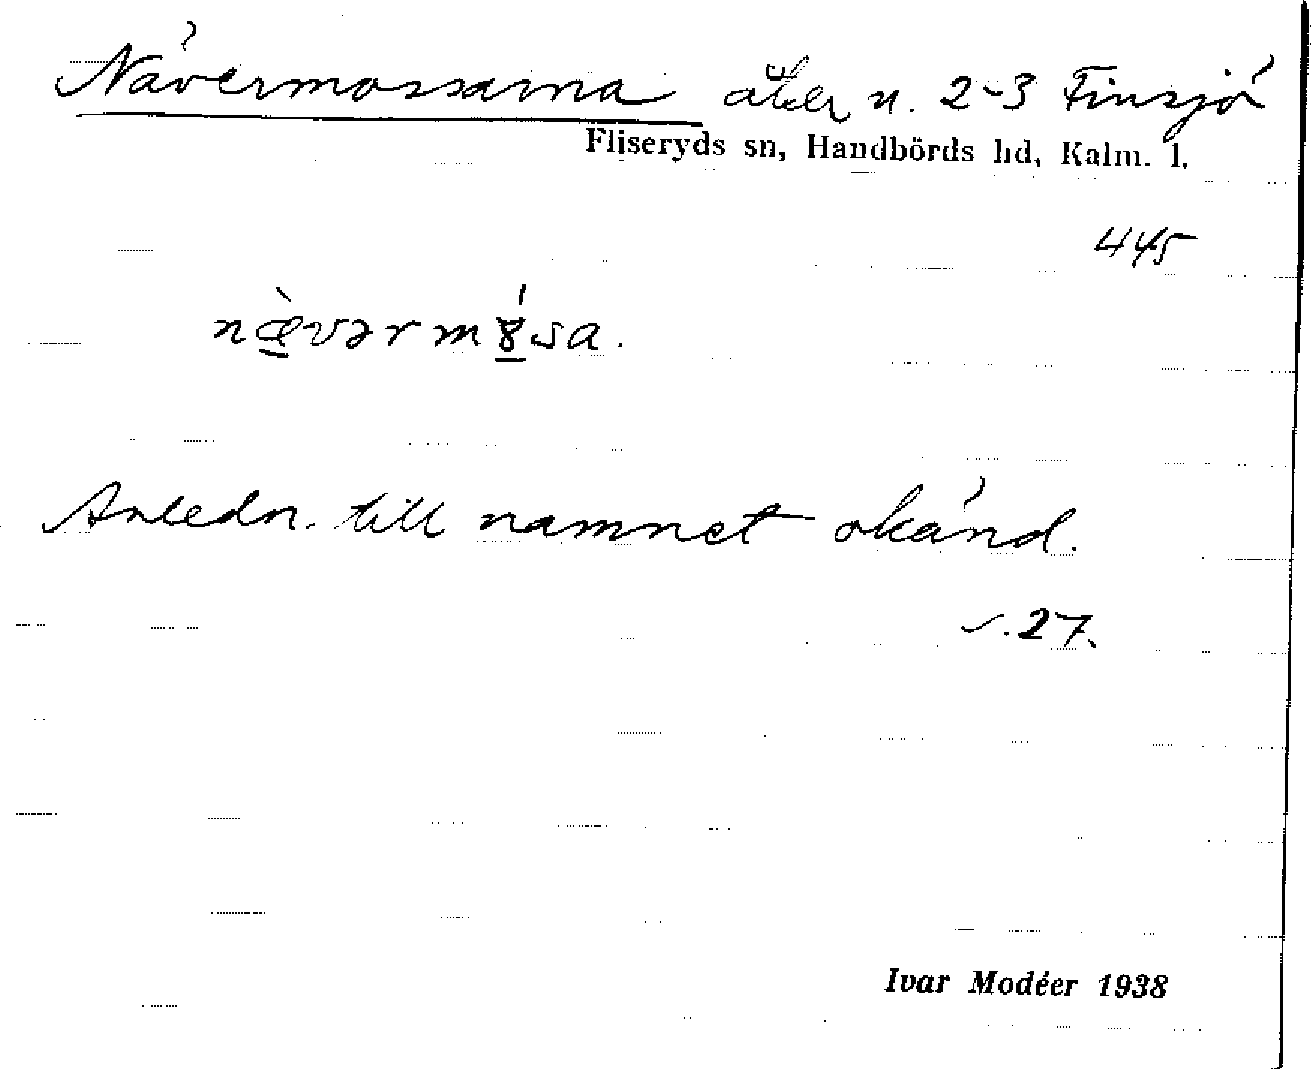 Nävermossarna åker n. 2-3 Finsjö
Fliseryds sn, Handbörds hd, Kalm. l.
445
næ̀vərmȣ́sa.
Anledn. till namnet okänd.
s. 27.
Ivar Modéer 1938